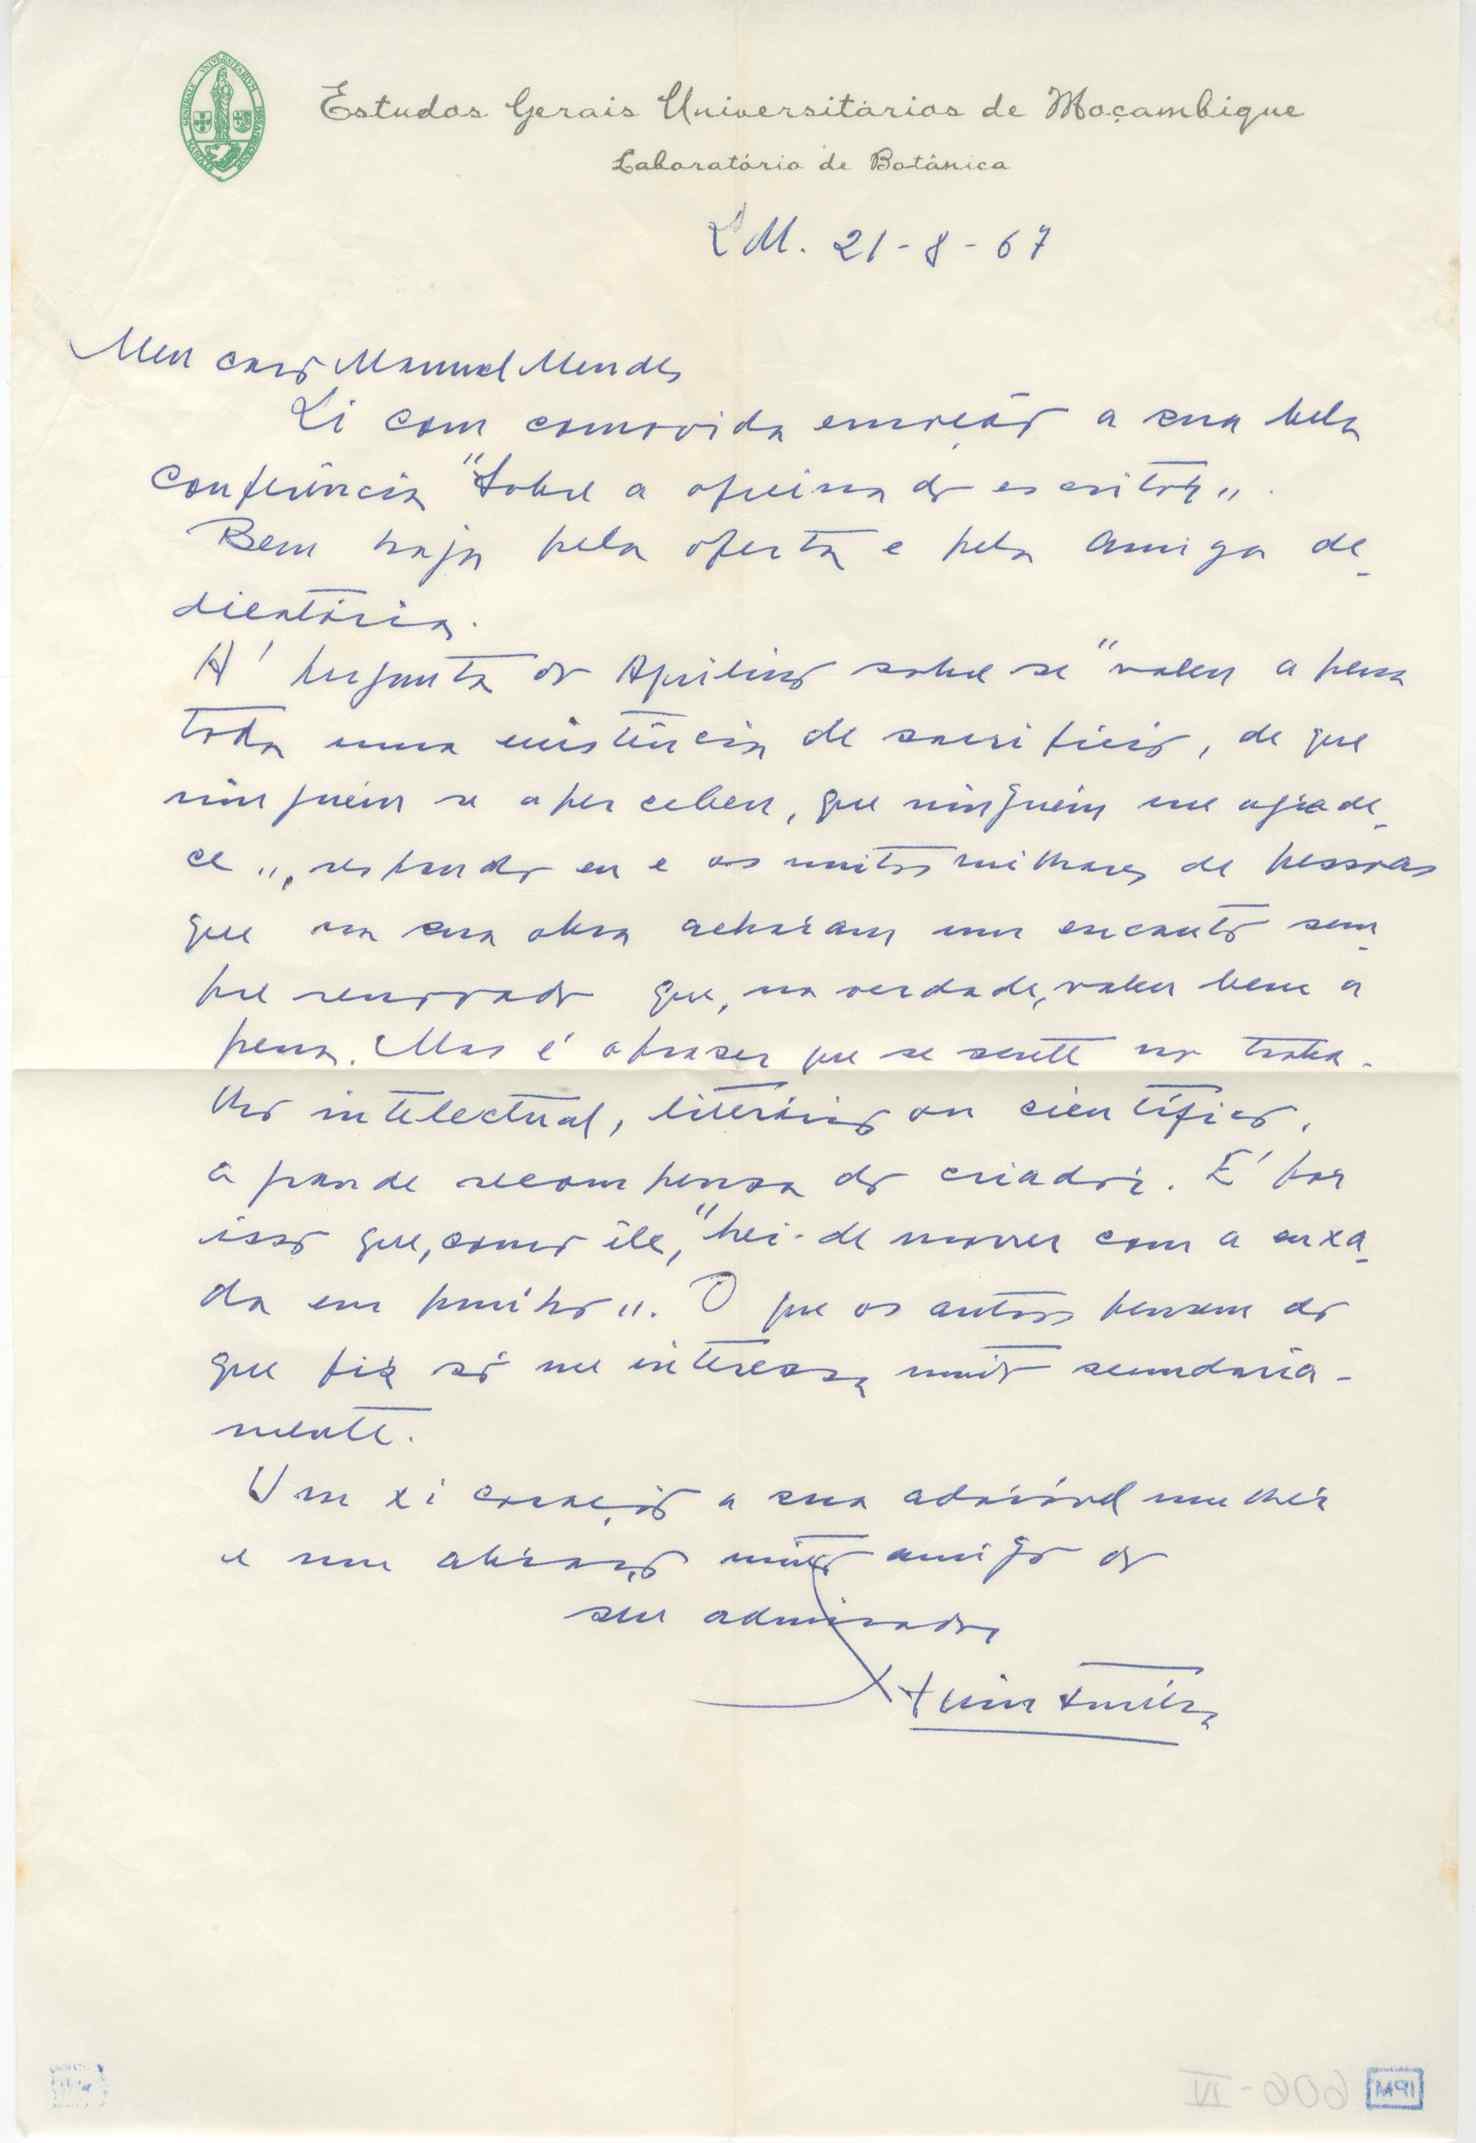 Estudos Gerais Universitários de Moçambique
Laboratório de Botânica
L M. 21-8-67
Meu caro Manuel Mendes
Li com comovida emoção a sua bela
conferência "Sobre a oficina do escritor".
Bem haja pela oferta e pela amiga de-
dicatória.
À pergunta do Aquilino sobre se "valeu a pena
toda uma existência de sacrifício, de que
ninguém se apercebeu, que ninguém me agrade-
ce", respondo eu e os muitos milhares de pessoas
que na sua obra acharam um encanto sem-
pre renovado que, na verdade, valeu bem a
pena. Mas é o prazer que se sente no traba-
lho intelectual, literário ou científico,
a grande recompensa do criador. E' por
isso que, como êle, "hei-de morrer com a enxa-
da em punho". O que os outros pensem do
que fiz só me interessa muito secundaria-
mente.
Um xi coração a sua adorável mulher
e um abraço muito amigo do
seu admirador